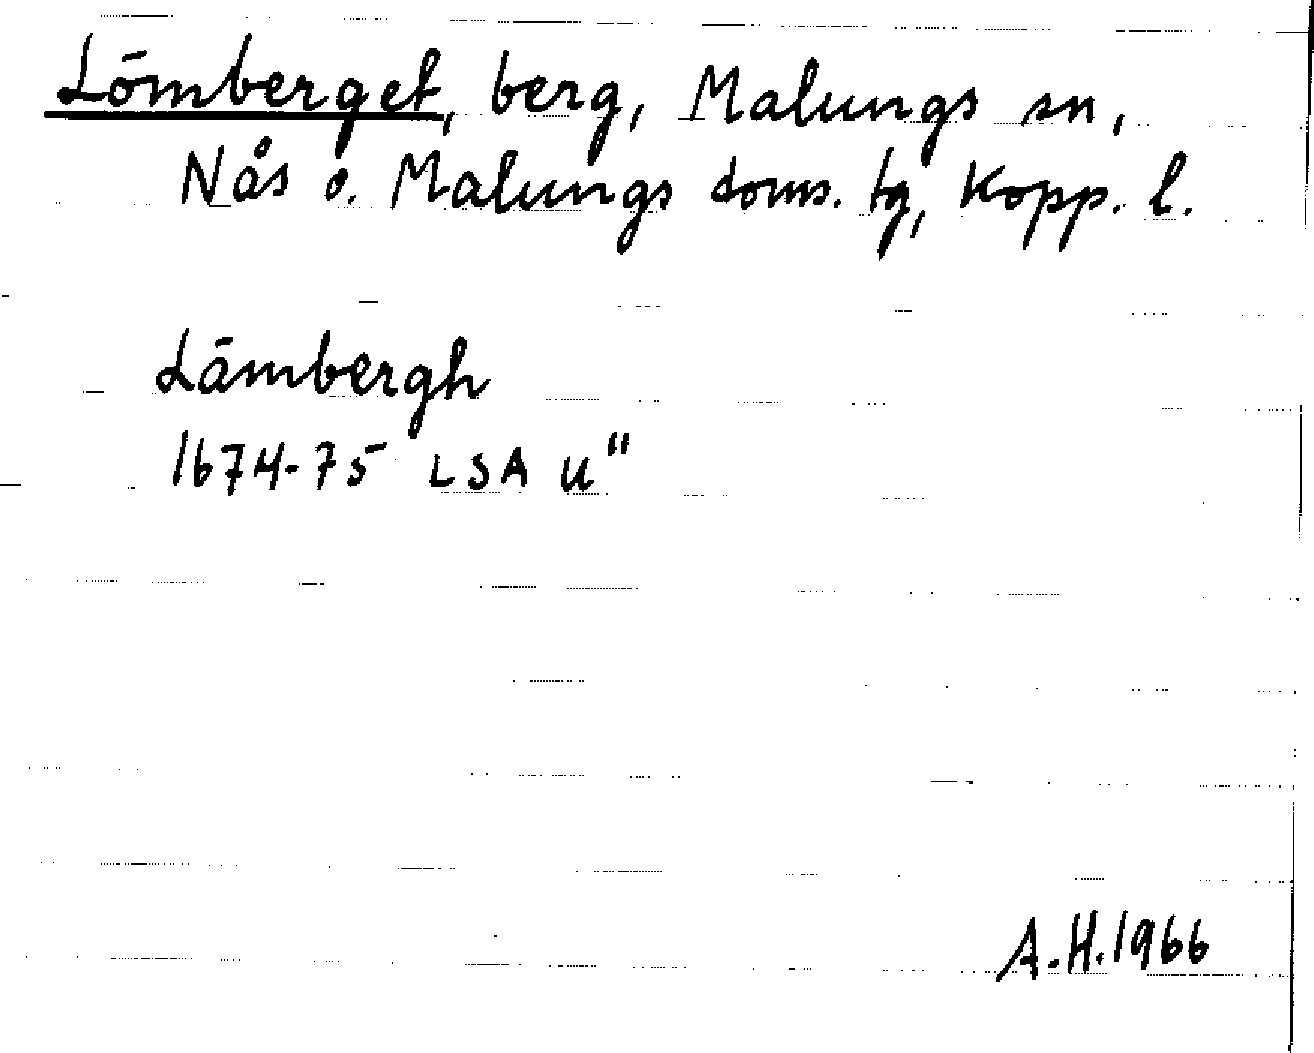 Lömberget, berg, Malungs sn,
Nås o. Malungs doms. tg, Kopp. l.
Lämbergh
1674-75 LSA U"
A.H.1966